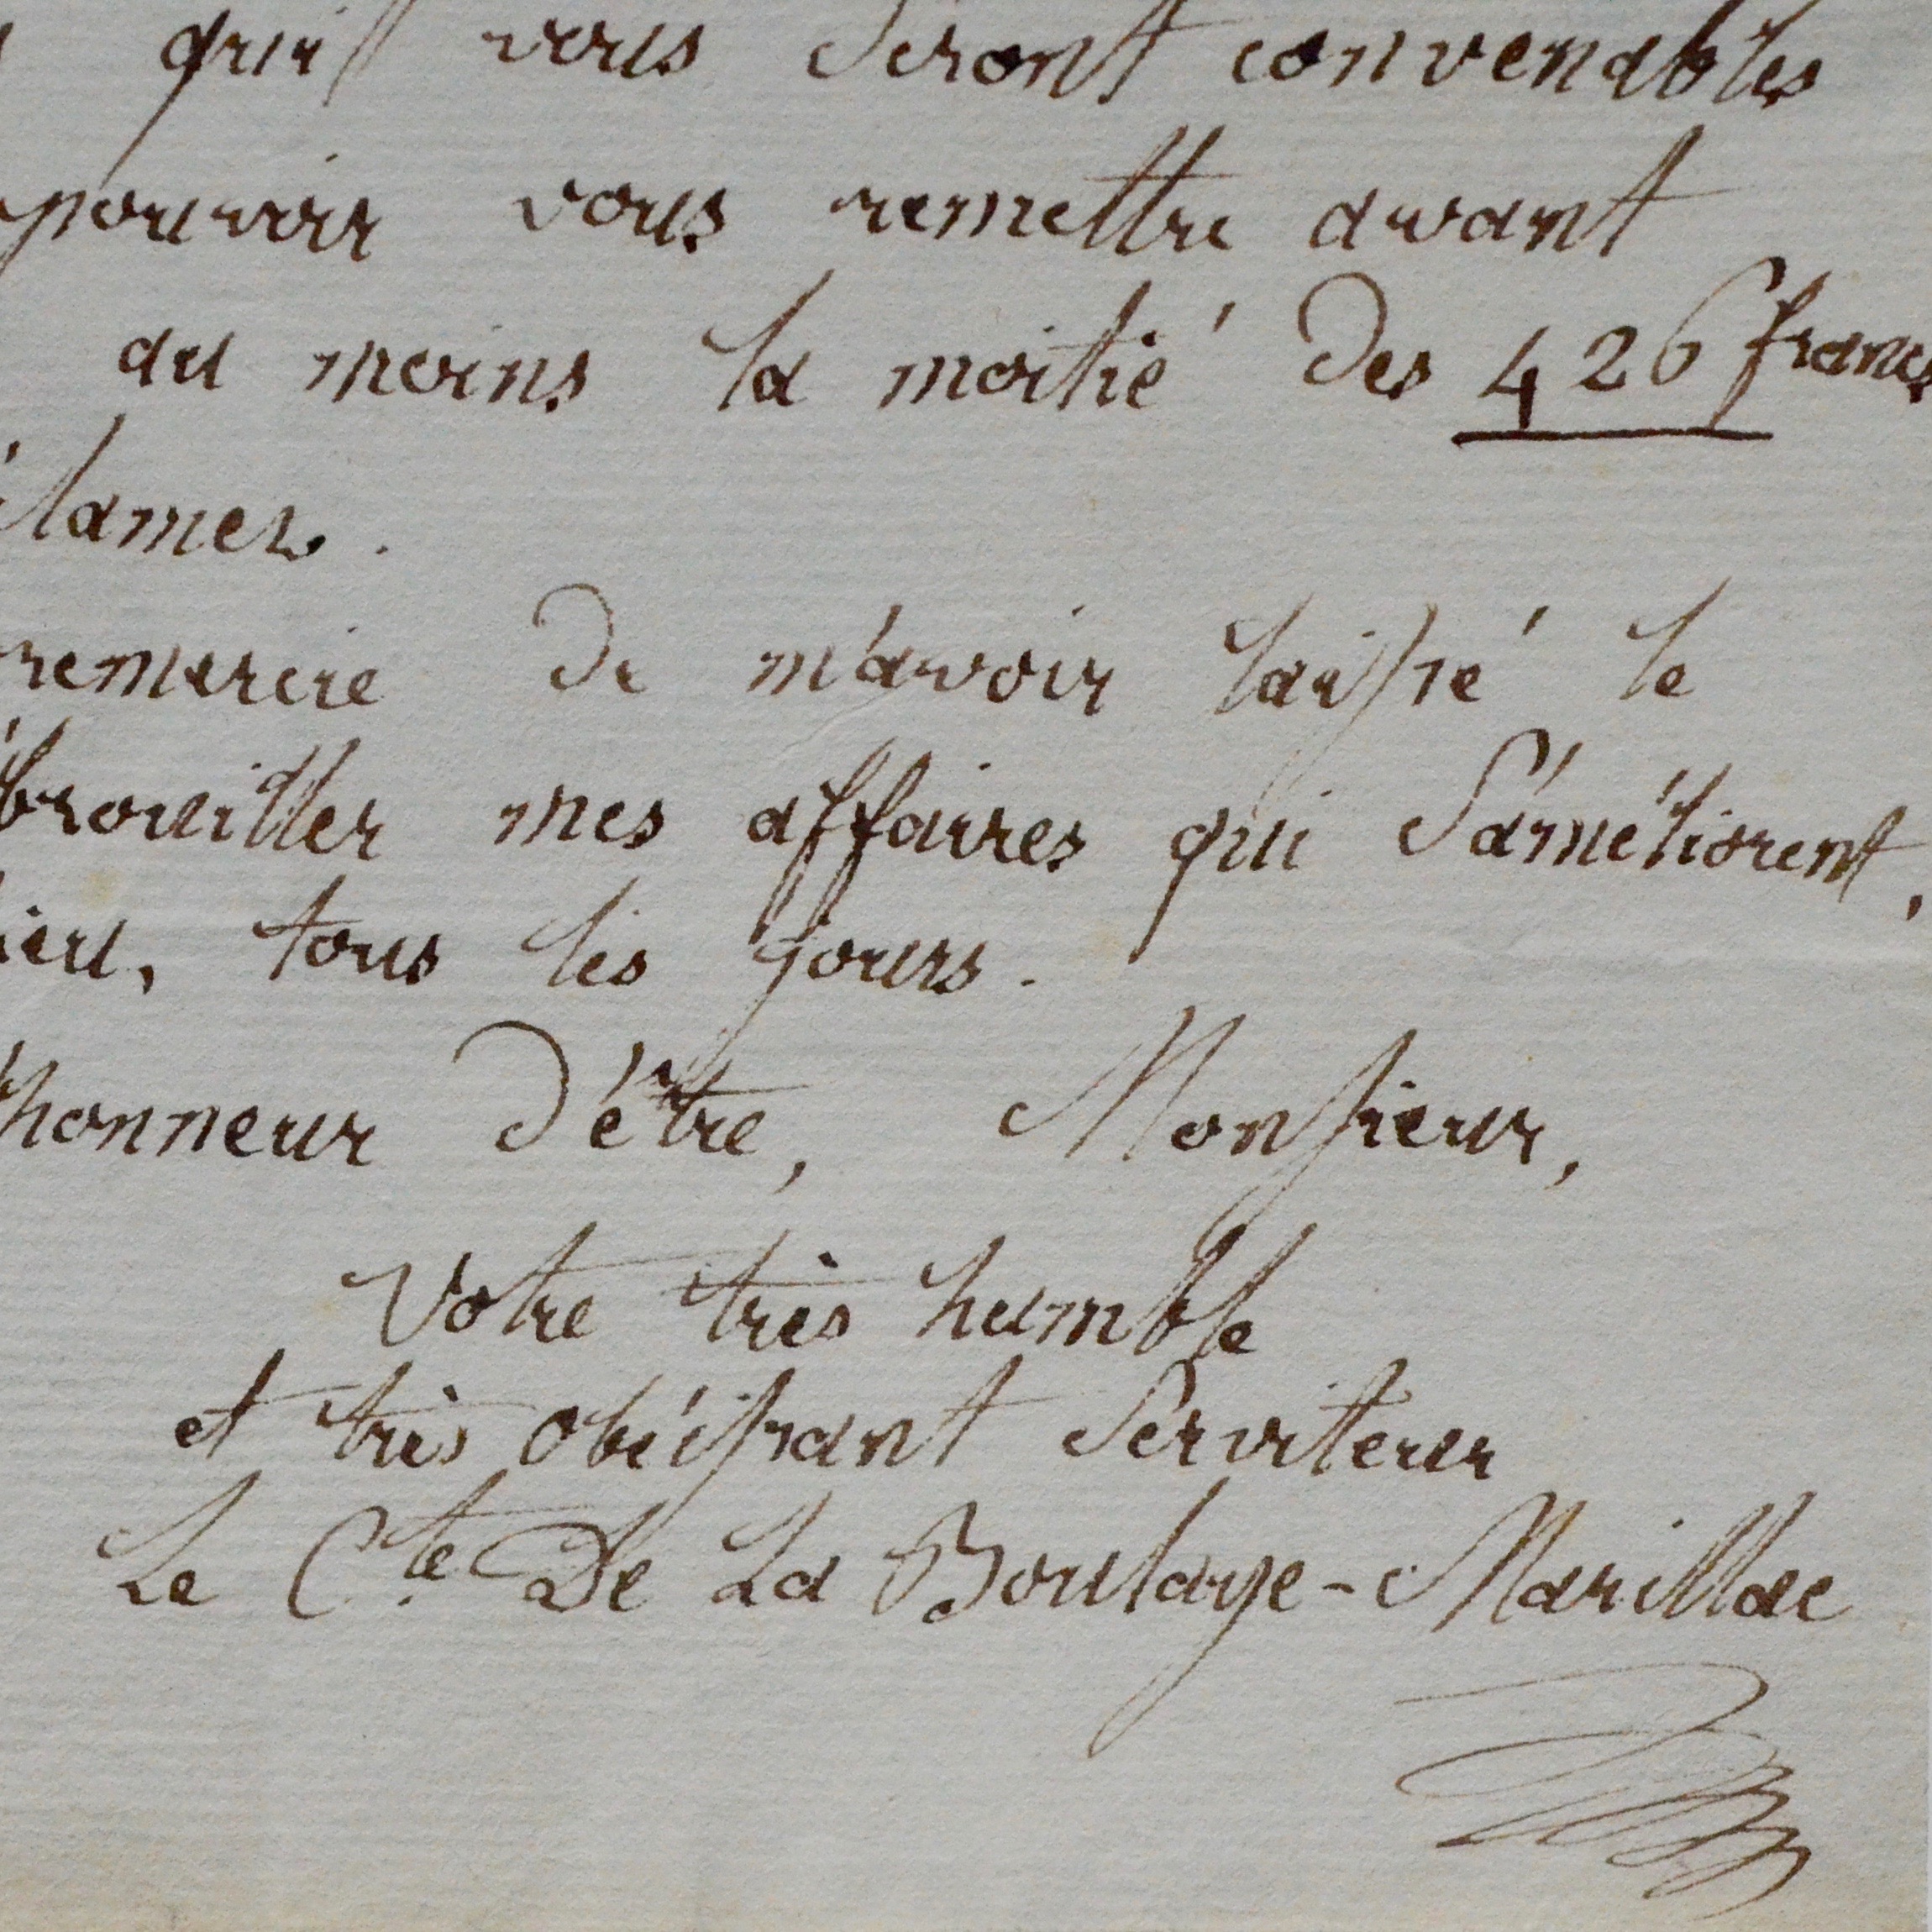 qu'il vous seront convenables
pouvoir vous remettre avant
au moins la moitié des 426 francs
lamez.
remercie de m'avoir laissé le
brouiller mes affaires qui s'améliorent,
ieu, tous les jours.
honneur d'être, Monsieur,
Votre très humble
et très obéissant Serviteur
Le Cte De La Boulaye-Marillac